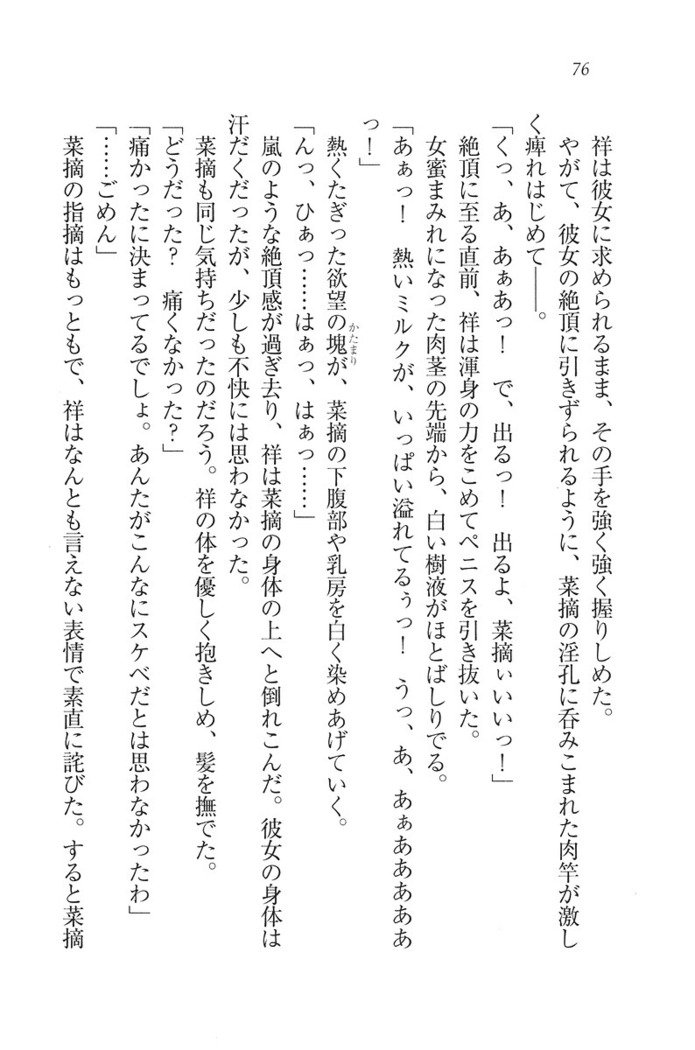 76
祥は彼女に求められるまま、その手を強く強く握りしめた。
やがて、彼女の絶頂に引きずられるように、菜摘の淫孔に呑みこまれた肉竿が激し
く痺れはじめて――。
「くっ、あ、あぁあっ！　で、出るっ！　出るよ、菜摘ぃいいっ！」
絶頂に至る直前、祥は渾身の力をこめてペニスを引き抜いた。
女蜜まみれになった肉茎の先端から、白い樹液がほとばしりでる。
「あぁっ！　熱いミルクが、いっぱい溢れてるぅっ！　うっ、あ、あぁああああぁ
っ！」
熱くたぎった欲望の塊が、菜摘の下腹部や乳房を白く染めあげていく。
かたまり
「んっ、ひぁっ……はぁっ、はぁっ……」
嵐のような絶頂感が過ぎ去り、祥は菜摘の身体の上へと倒れこんだ。彼女の身体は
汗だくだったが、少しも不快には思わなかった。
菜摘も同じ気持ちだったのだろう。祥の体を優しく抱きしめ、髪を撫でた。
「どうだった？　痛くなかった？」
「痛かったに決まってるでしょ。あんたがこんなにスケベだとは思わなかったわ」
「……ごめん」
菜摘の指摘はもっともで、祥はなんとも言えない表情で素直に詫びた。すると菜摘